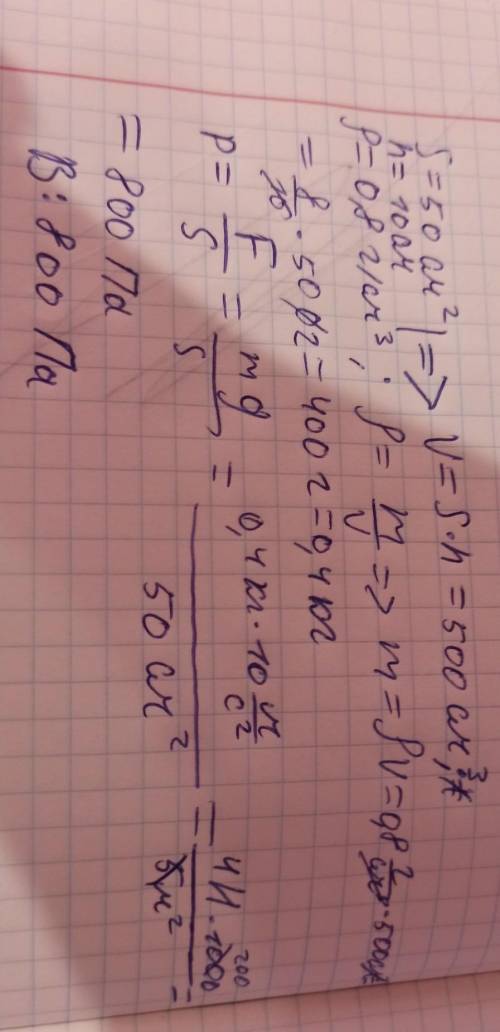 S = 50 см² | => V = S·h = 500 см³;
h = 10 см
ρ = 0,8 г/см³; ρ = m/V => m = ρV = 0,8 г/см³ · 500 см³
= 8/10 · 500 г = 400 г = 0,4 кг
p = F/S = mg/S = 0,4 кг · 10 м/с² / 50 см² = 4Н · 1000 200 / 5 м² =
= 800 Па
В: 800 Па